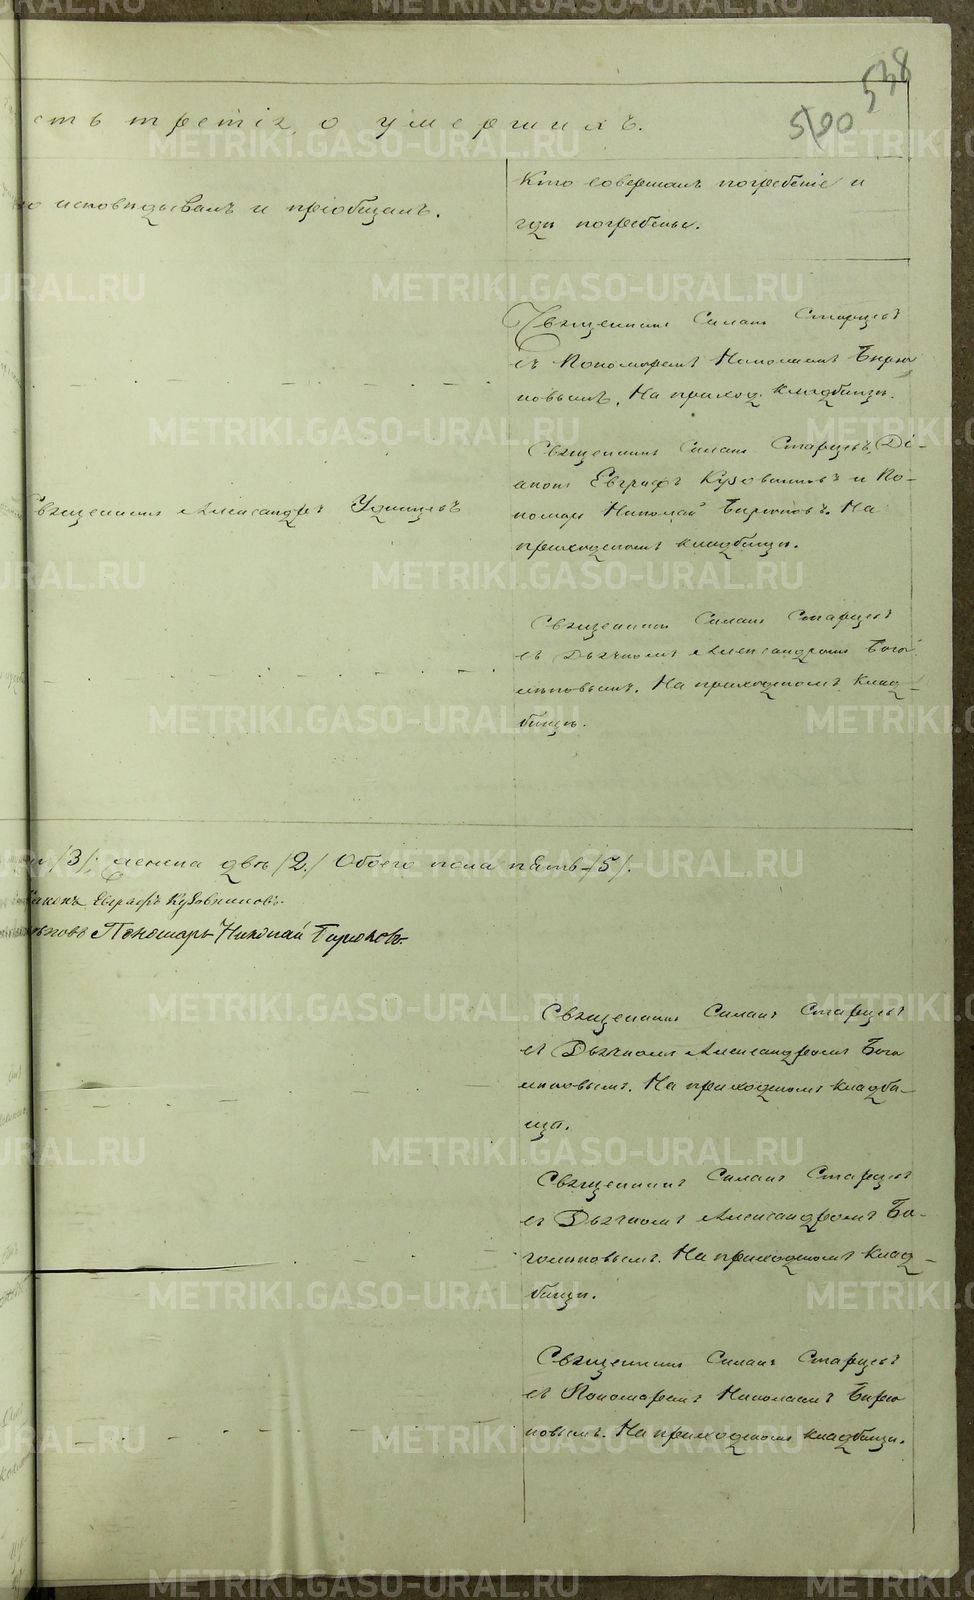 538
5190
сть третія, о умершихъ.
то исповѣдывалъ и пріобщалъ.
Кто совершалъ погребеніе и
гдѣ погребены.
Священникъ Силанъ Старцевъ
съ Пономаремъ Николаемъ Бирю
ковымъ. На приход. кладбищѣ.
Священникъ Александръ Удинцевъ
Священникъ Силанъ Старцевъ, Ді-
аконъ Евграфъ Кузовниковъ и По-
номарь Николай Бирюковъ. На
приходскомъ кладбищѣ.
Священникъ Силанъ Старцевъ
съ Дьячкомъ Александромъ Бого
лѣповымъ. На приходскомъ клад-
бищѣ.
/3/; женска двѣ /2./ Обоего пола пять /5/.
Діаконъ Евграфъ Кузовниковъ.
Пономарь Николай Бирюковъ.
Священникъ Силанъ Старцевъ
съ Дьячкомъ Александромъ Бого
лѣповымъ. На приходскомъ кладби-
щѣ.
Священникъ Силанъ Старцевъ
съ Дьячкомъ Александромъ Бо-
голѣповымъ. На приходскомъ клад-
бищѣ.
Священникъ Силанъ Старцевъ
съ Пономаремъ Николаемъ Бирю
ковымъ. На приходскомъ кладбищѣ.
METRIKI.GASO-URAL.RU